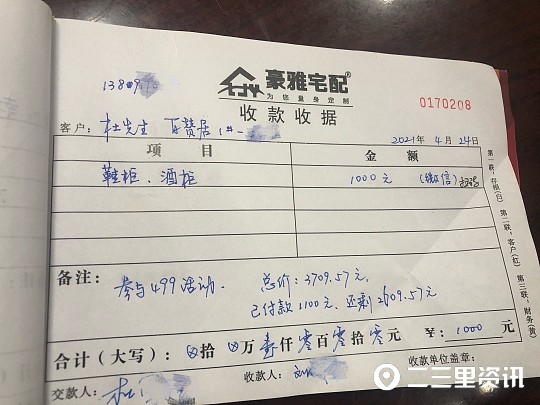 豪雅宅配
为您量身定制
收款收据
0170208
客户：杜先生 百赞居 1#-
2021年4月24日
项目 金额
鞋柜、酒柜 1000元 (微信)
备注：参与499活动. 总价：3709.57元,
已付款1100元,还剩2609.57元
合计（大写）：⊗拾⊗万壹仟零百零拾零元 ¥：1000元
交款人：杜 收款人： 收款单位盖章：
第一联：存根(白) 第二联：客户(红) 第三联：财务(黄)
二三里资讯